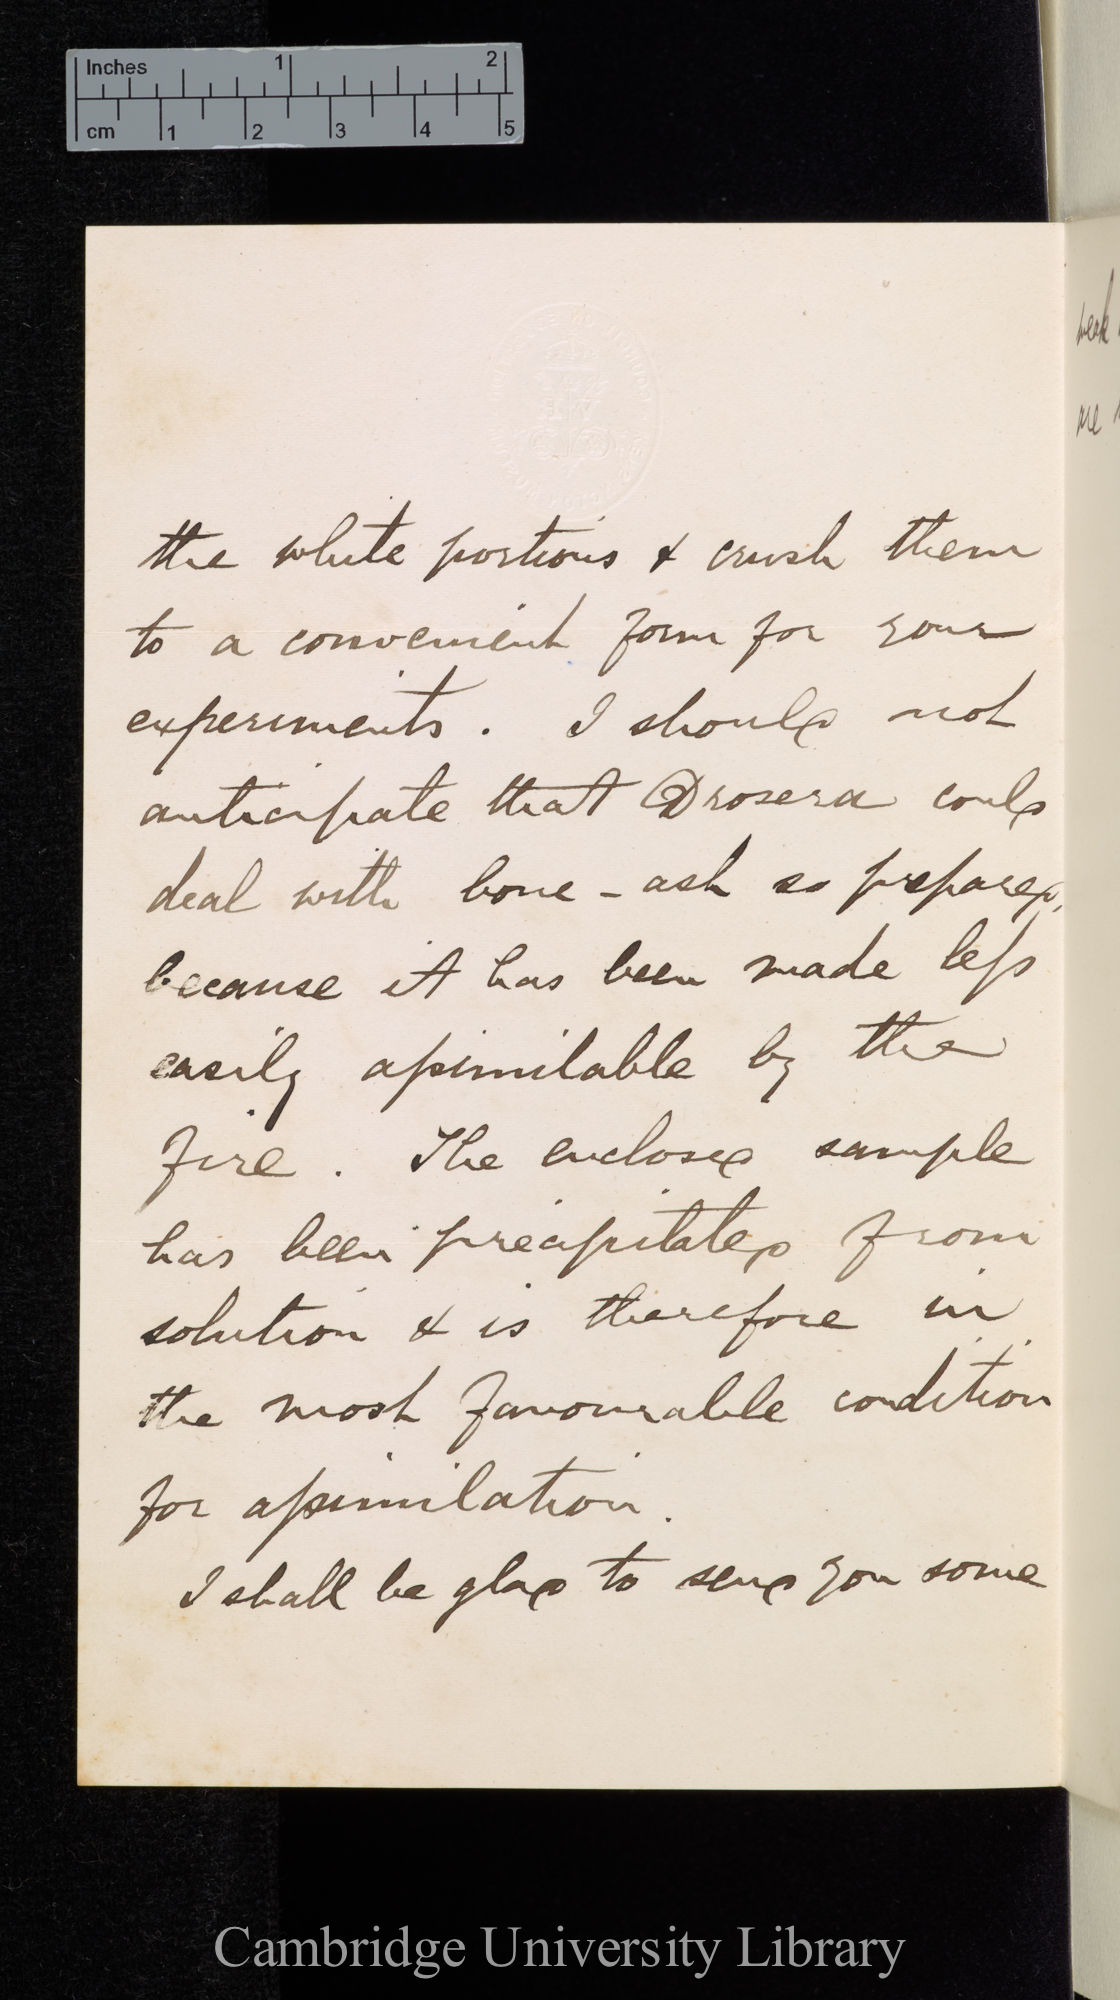 Inches 1 2
cm 1 2 3 4 5
the white portions & crush them
to a convenient form for your
experiments. I should not
anticipate that Drosera could
deal with bone-ash so prepared,
because it has been made less
easily assimilable by the
fire. The enclosed sample
has been precipitated from
solution & is therefore in
the most favourable condition
for assimilation.
I shall be glad to send you some
weak
are
Cambridge University Library